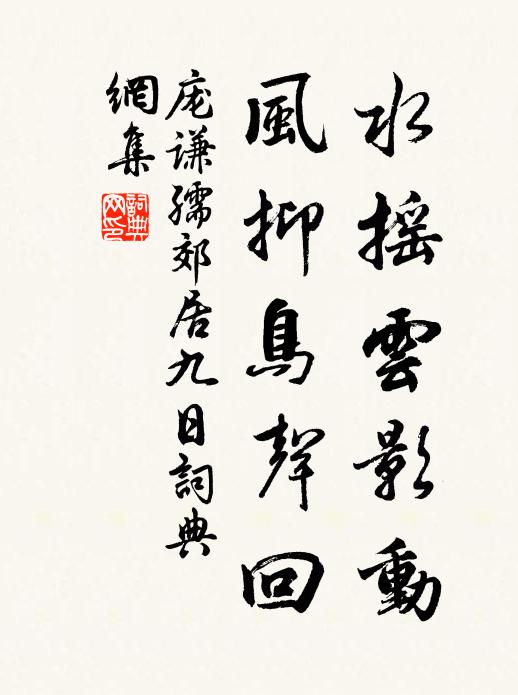 水搖雲影動
風抑鳥聲回
庞謙孺郊居九日詞典
網集
詞典
网印